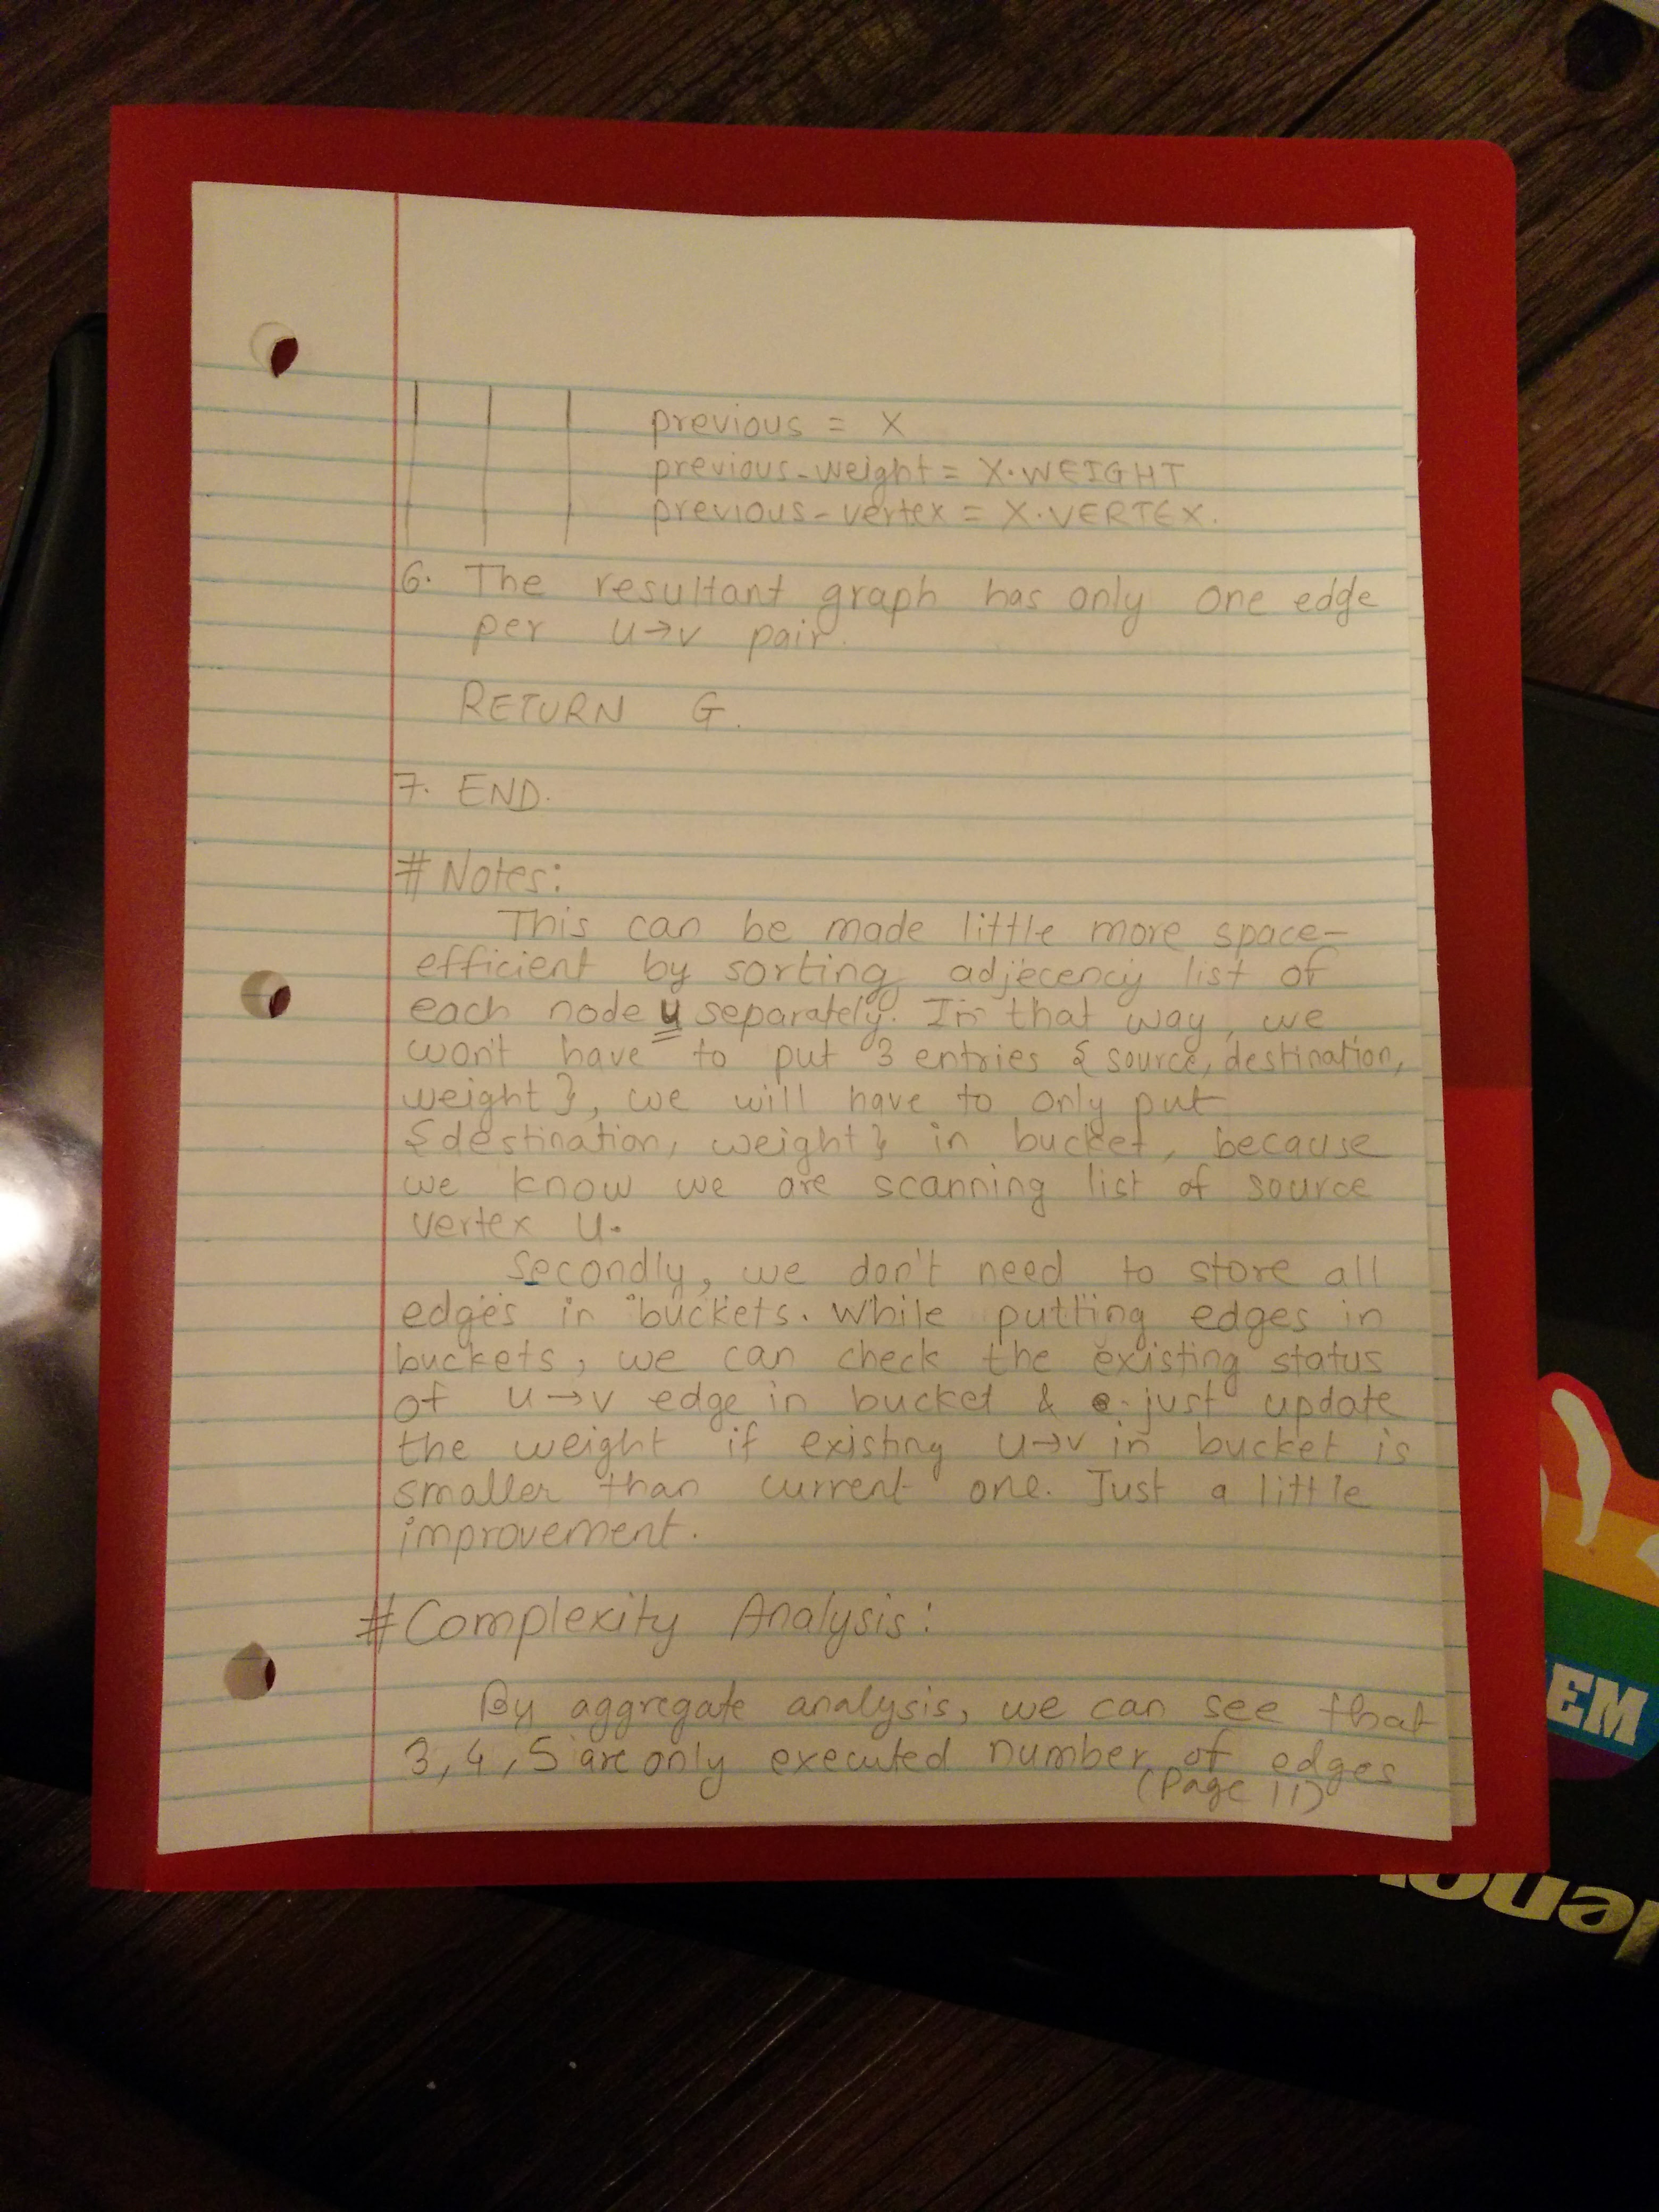 previous = X
previous-weight = X.WEIGHT
previous-vertex = X.VERTEX.
6. The resultant graph has only one edge
per u→v pair.
RETURN G.
7. END.
# Notes:
This can be made little more space-
efficient by sorting adjecency list of
each node u separately. In that way, we
won't have to put 3 entries {source, destination,
weight}, we will have to only put
{destination, weight} in bucket, because
we know we are scanning list of source
vertex u.
Secondly, we don't need to store all
edges in buckets. While putting edges in
buckets, we can check the existing status
of u→v edge in bucket & just update
the weight if existing u→v in bucket is
smaller than current one. Just a little
improvement.
# Complexity Analysis:
By aggregate analysis, we can see that
3, 4, 5 are only executed number of edges
(Page 11)
EM